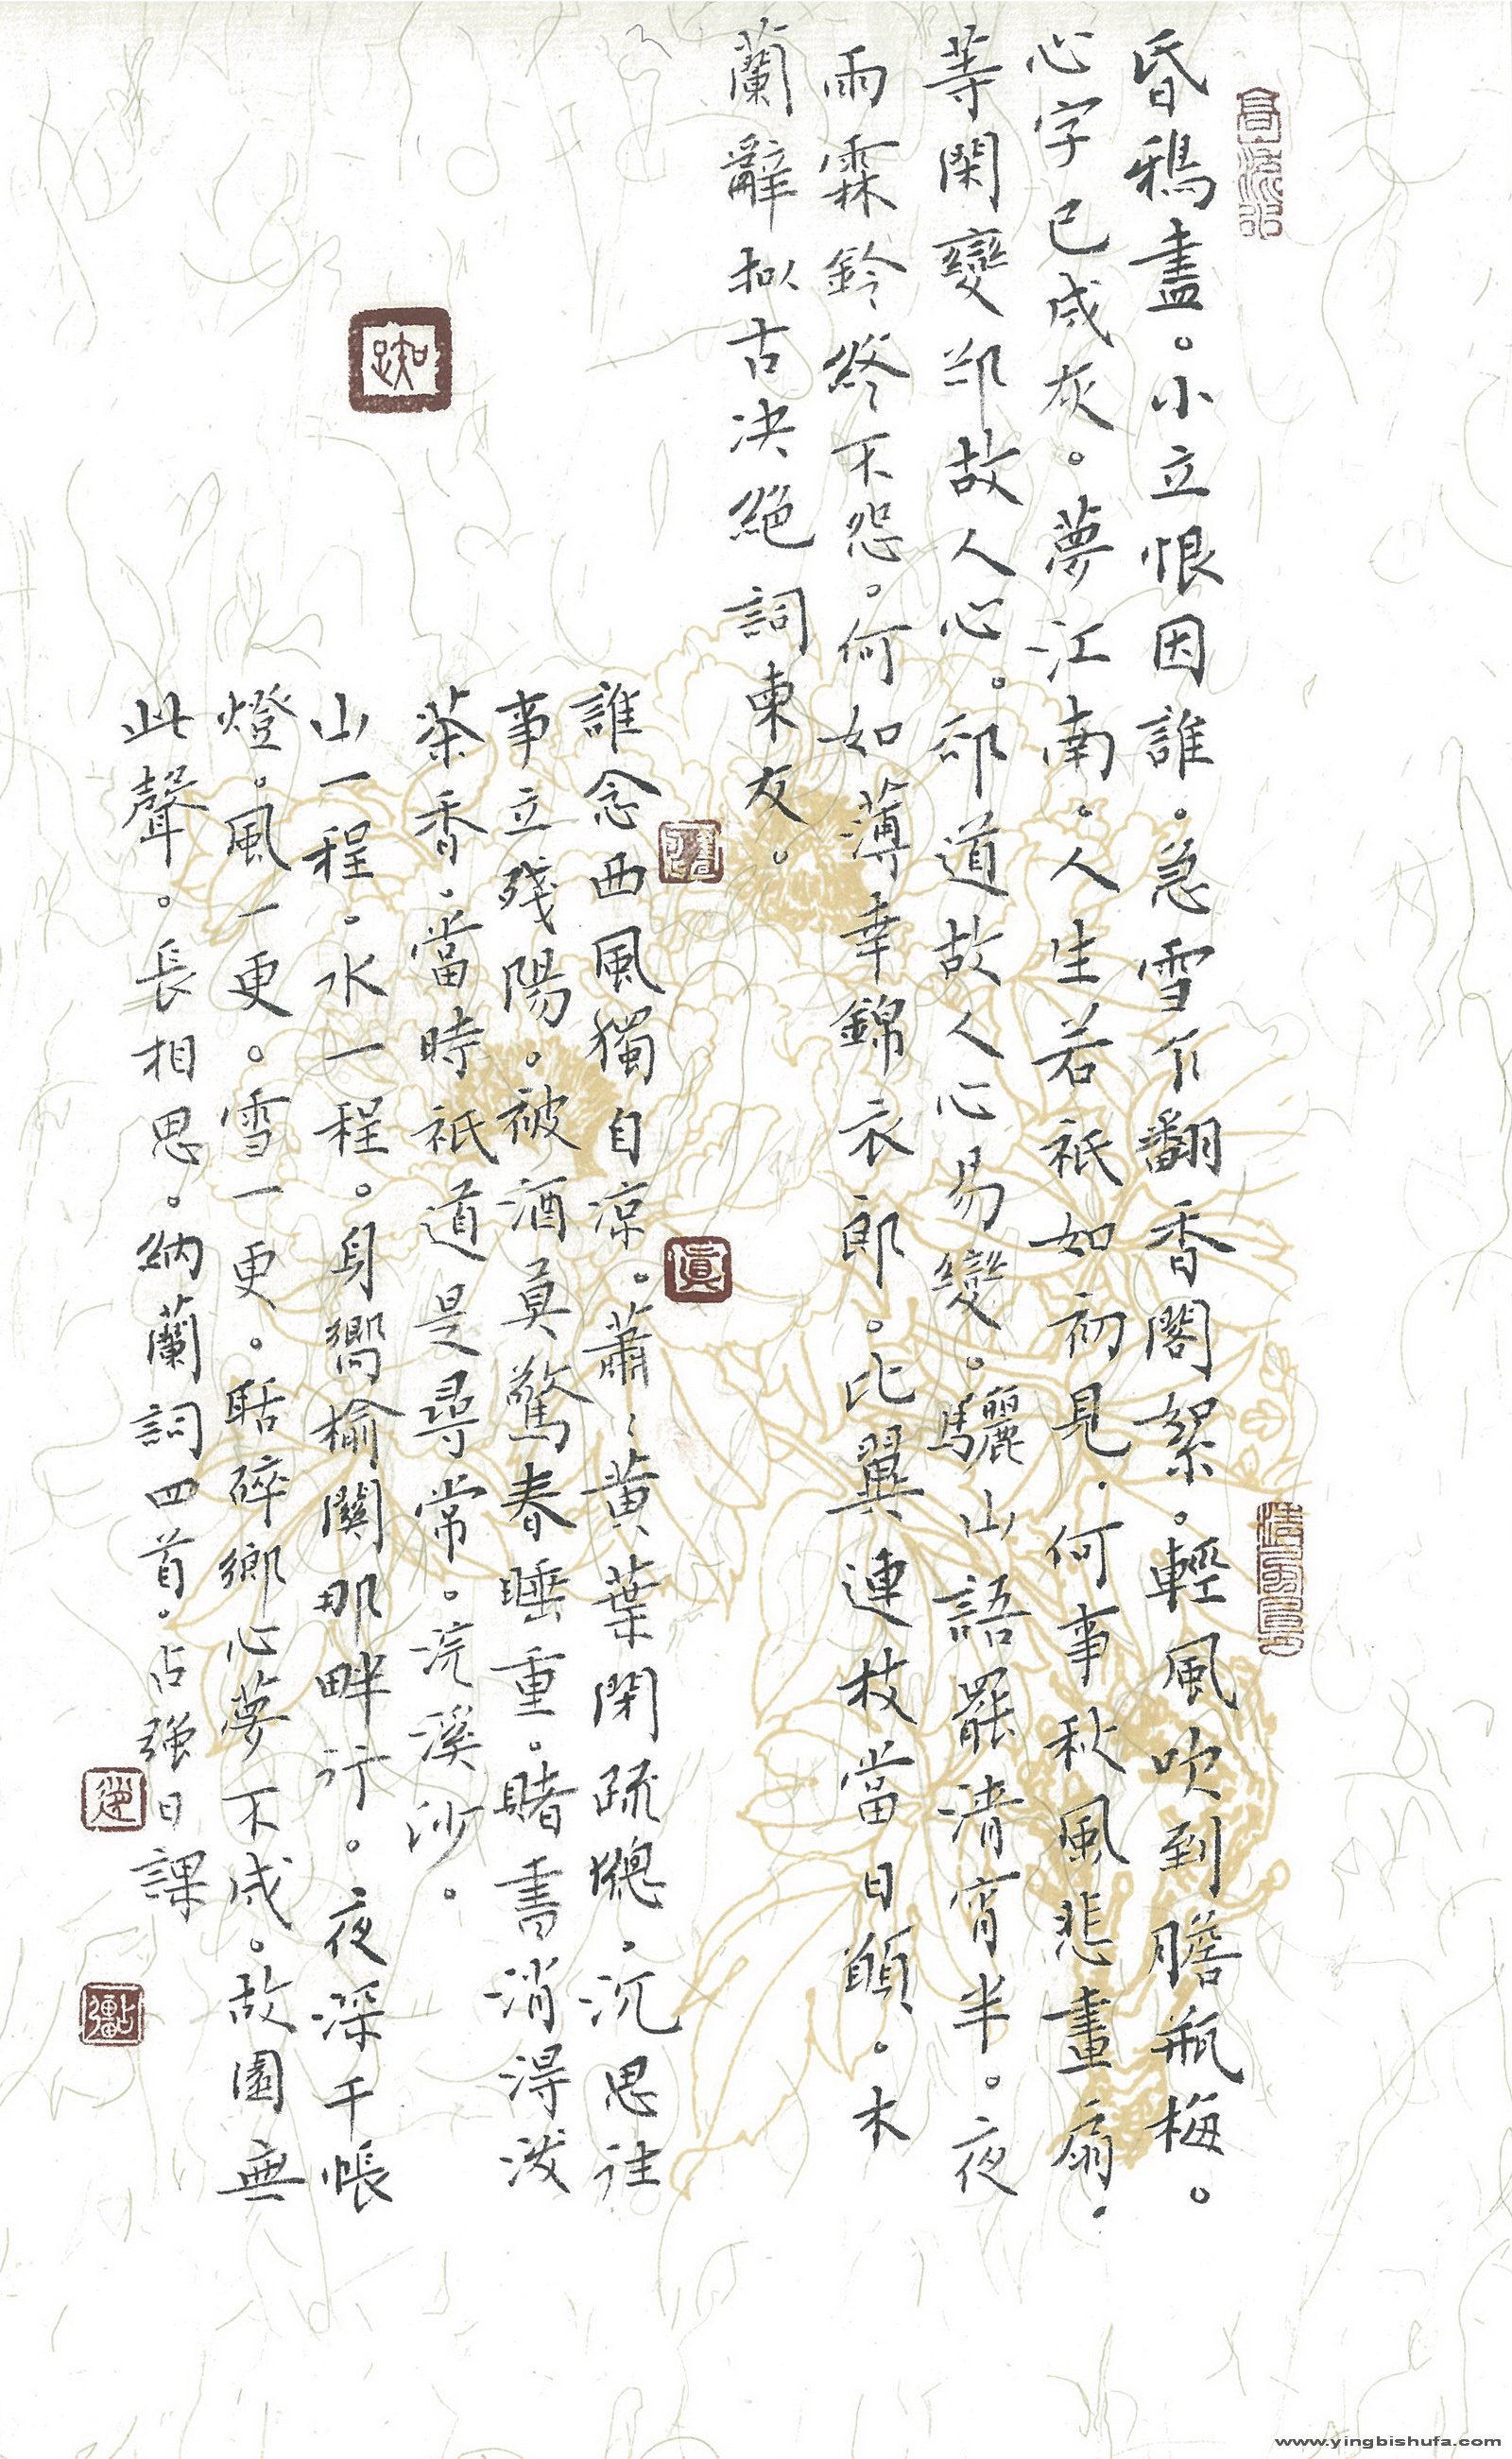 昏鴉盡。小立恨因誰。急雪乍翻香閣絮。輕風吹到膽瓶梅。
心字已成灰。夢江南。人生若祇如初見。何事秋風悲畫扇。
等閑變卻故人心。卻道故人心易變。驪山語罷清宵半。夜
雨霖鈴終不怨。何如薄幸錦衣郎。比翼連枝當日願。木
蘭辭擬古決絕詞柬友。
誰念西風獨自涼。蕭〻黃葉閉疏窗。沉思往
事立殘陽。被酒莫驚春睡重。賭書消得潑
茶香。當時祇道是尋常。浣溪沙。
山一程。水一程。身嚮榆關那畔行。夜深千帳
燈。風一更。雪一更。聒碎鄉心夢不成。故園無
此聲。長相思。納蘭詞四首。占強日課
知足
真
www.yingbishufa.com